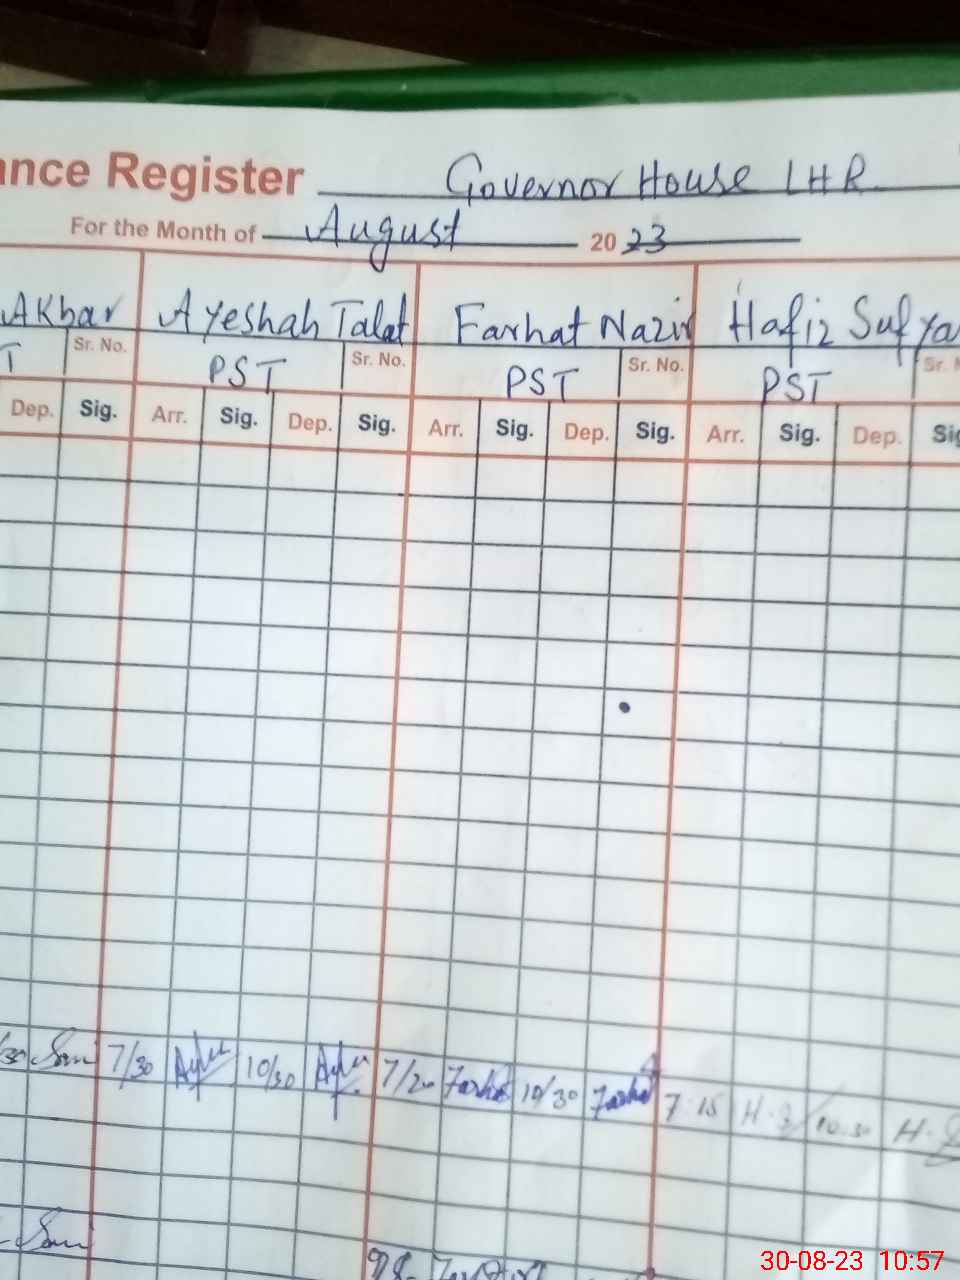 ance Register Governor House LHR
For the Month of August 2023
Akbar Ayeshah Talat Farhat Nazir Hafiz Sufya
T Sr. No. PST Sr. No. PST Sr. No. PST Sr. N
Dep. Sig. Arr. Sig. Dep. Sig. Arr. Sig. Dep. Sig. Arr. Sig. Dep. Sig
/30 7/30 10/30 7/20 Farhat 10/30 Farhat 7:15 10:30
30-08-23 10:57